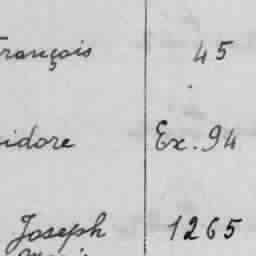 François 45
idore Ex. 94
Joseph 1265